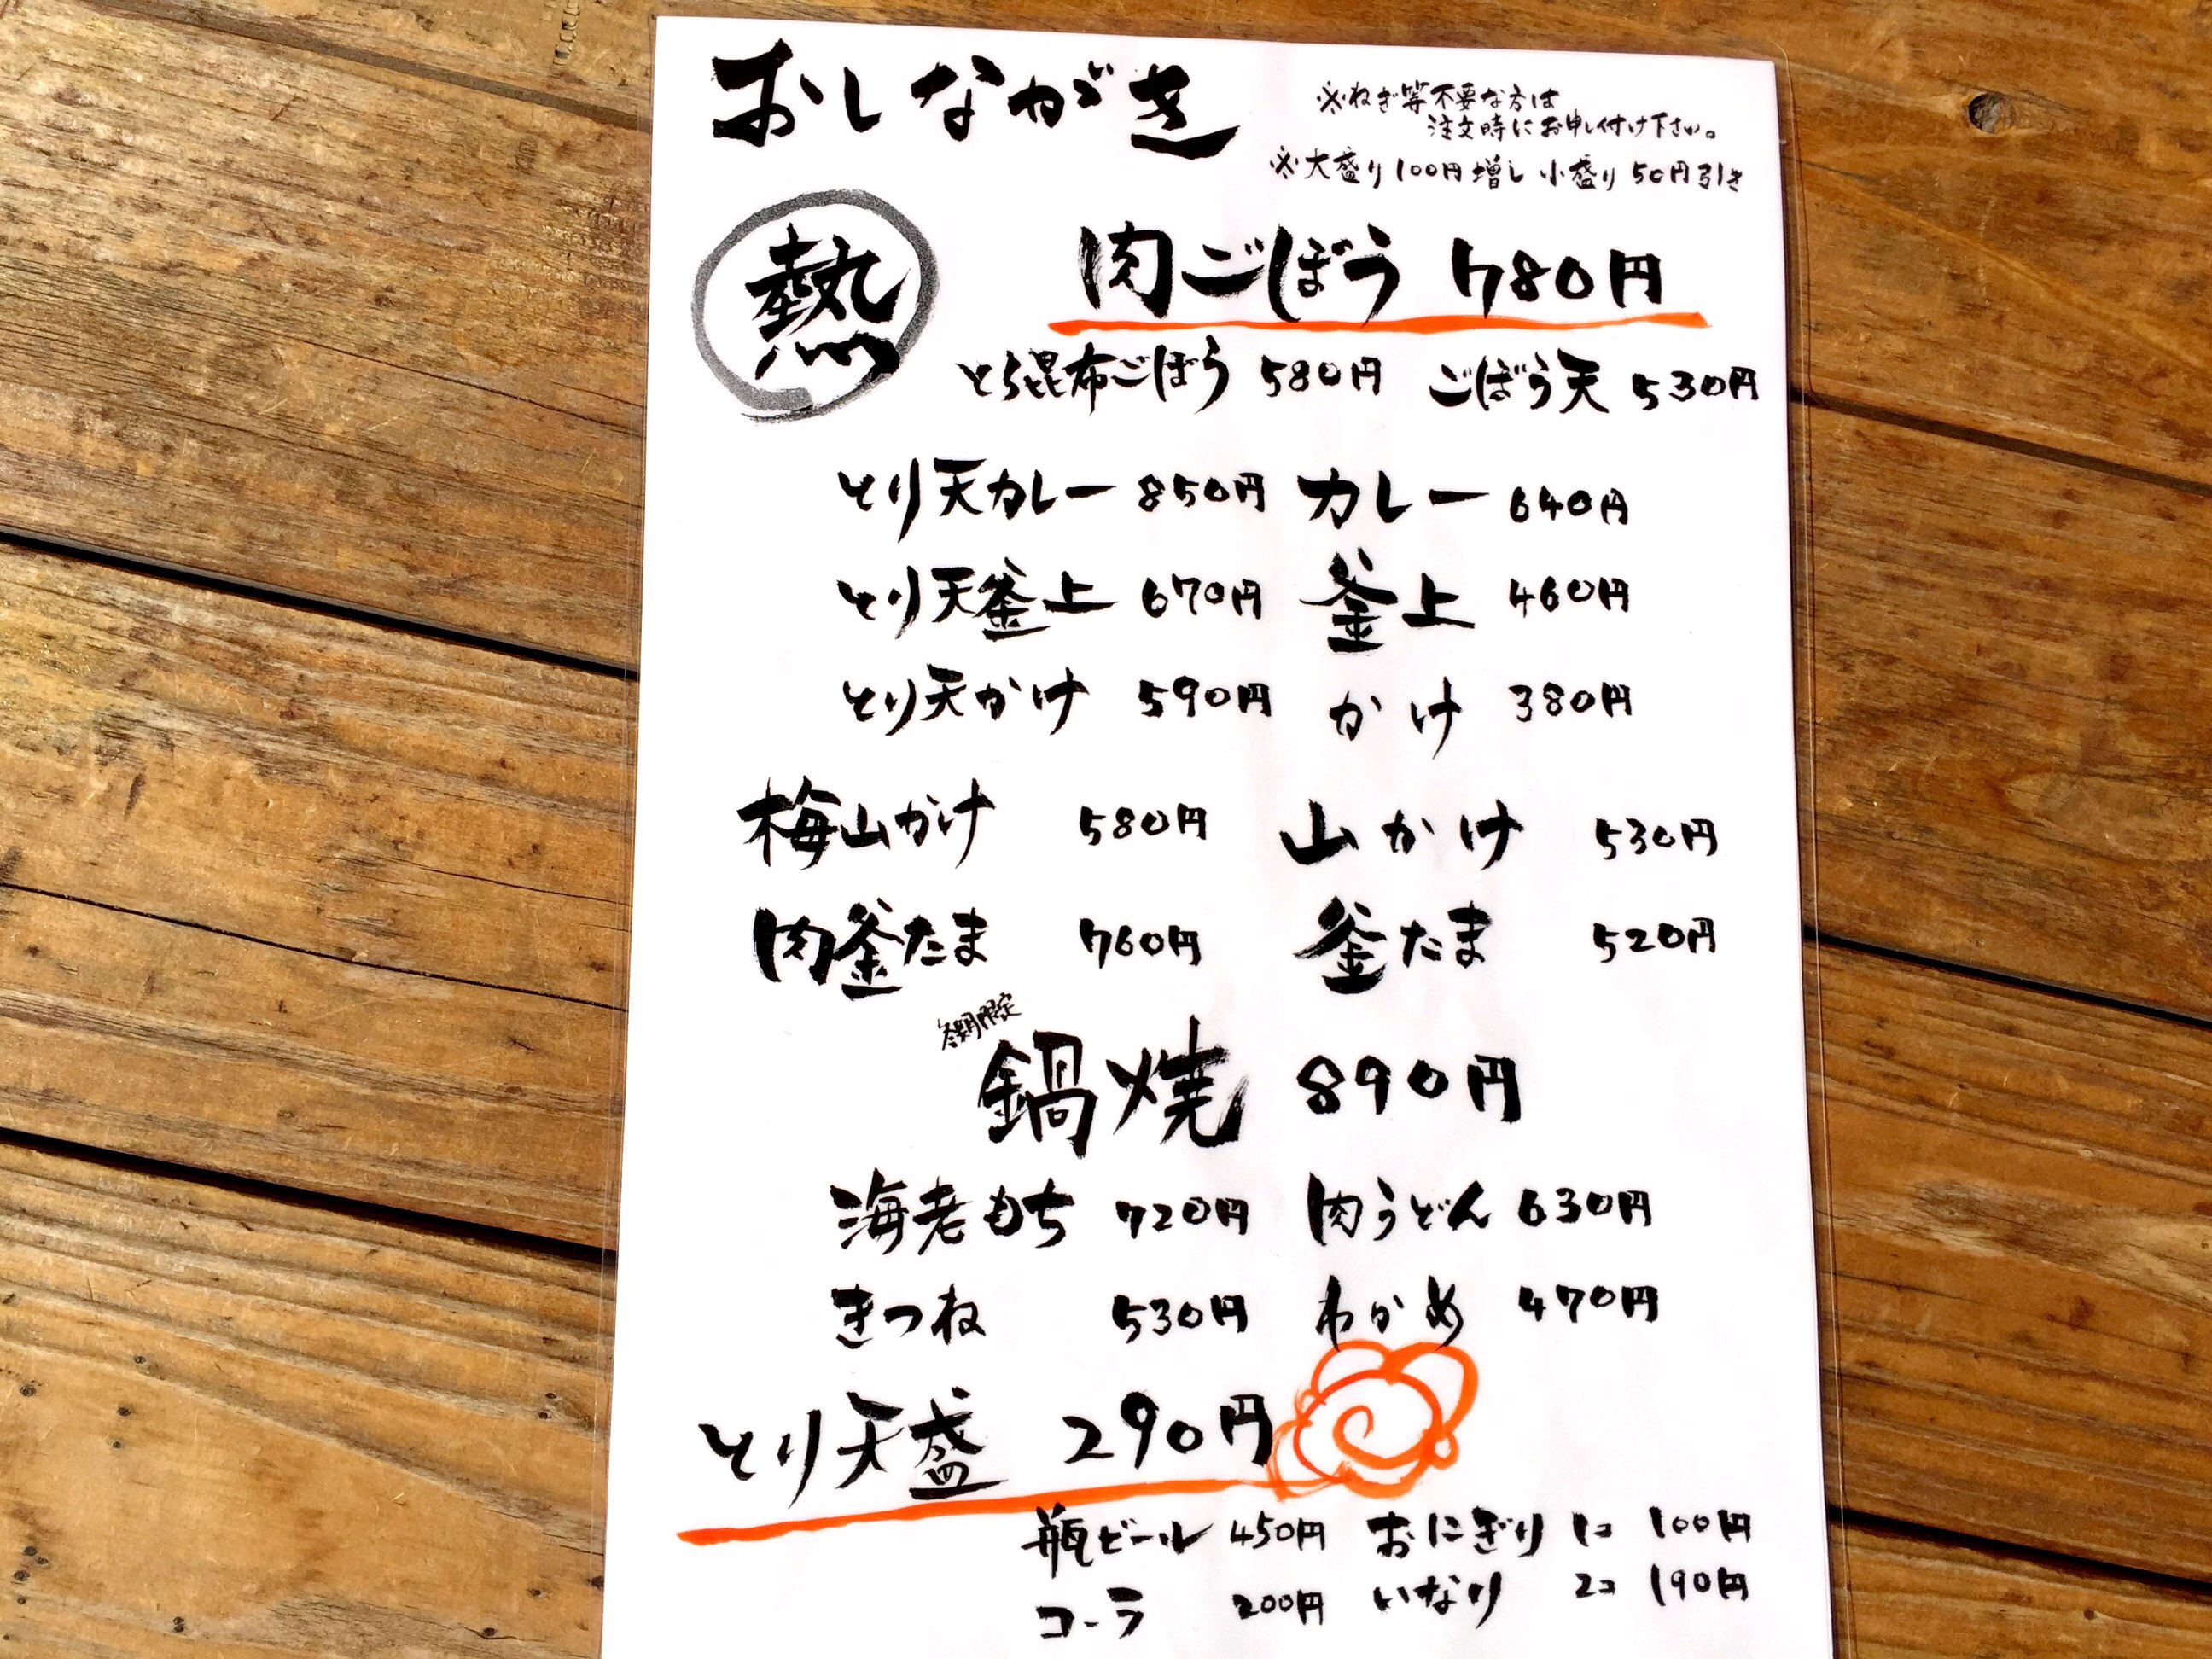 おしながき
※ねぎ等不要な方は
注文時にお申し付け下さい。
※大盛り100円増し 小盛り50円引き
熱
肉ごぼう 780円
とろ昆布ごぼう 580円 ごぼう天 530円
とり天カレー 850円 カレー 640円
とり天釜上 670円 釜上 460円
とり天かけ 590円 かけ 380円
梅山かけ 580円 山かけ 530円
肉釜たま 760円 釜たま 520円
冬期限定
鍋焼 890円
海老もち 720円 肉うどん 630円
きつね 530円 わかめ 470円
とり天盛 290円
瓶ビール 450円 おにぎり 1コ 100円
コーラ 200円 いなり 2コ 190円